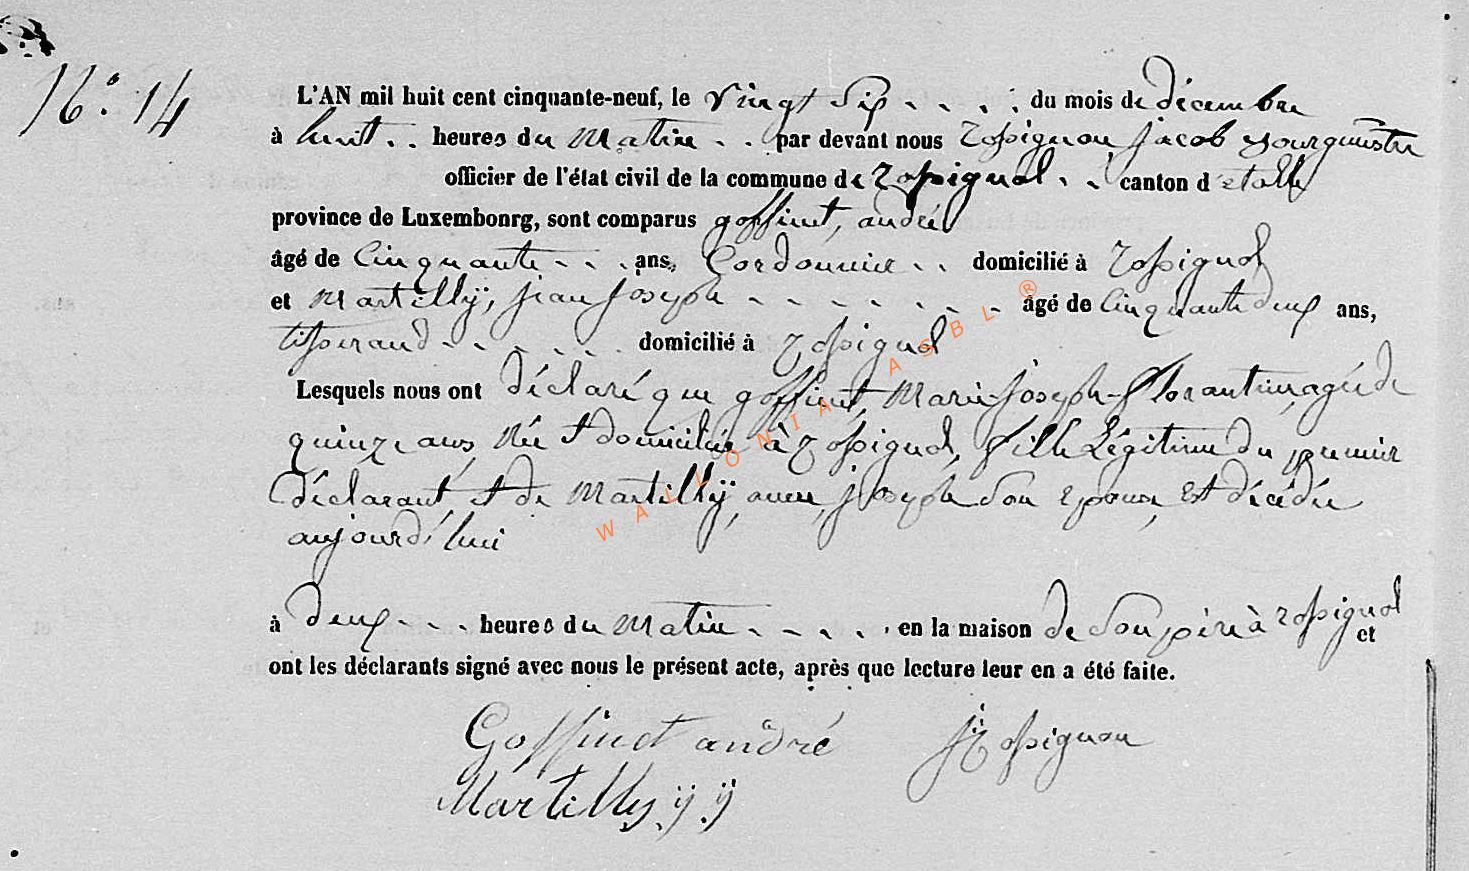 N° 14
L'AN mil huit cent cinquante-neuf, le vingt six du mois de décembre
à huit heures du matin par devant nous rossignon, jacob Bourgmestre
officier de l'état civil de la commune de rossignol canton d'etalle
province de Luxembonrg, sont comparus goffinet, andré
âgé de Cinquante ans, Cordonnier domicilié à rossignol
et Martillÿ, jean joseph âgé de Cinquante deux ans,
tisserand domicilié à rossignol
Lesquels nous ont déclaré que goffinet, Marie-joseph-florantine, agée de
quinze ans, Née et domiciliée à rossignol, fille Légitime du premier
déclarant, et de Martillÿ, anne, joseph son epouse, est décédée
aujourd'hui
à deux heures du matin en la maison de son père à rossignol et
ont les déclarants signé avec nous le présent acte, après que lecture leur en a été faite.
Goffinet andré J Rossignon
Martilly ÿ ÿ
WALLONIA ASBL ®